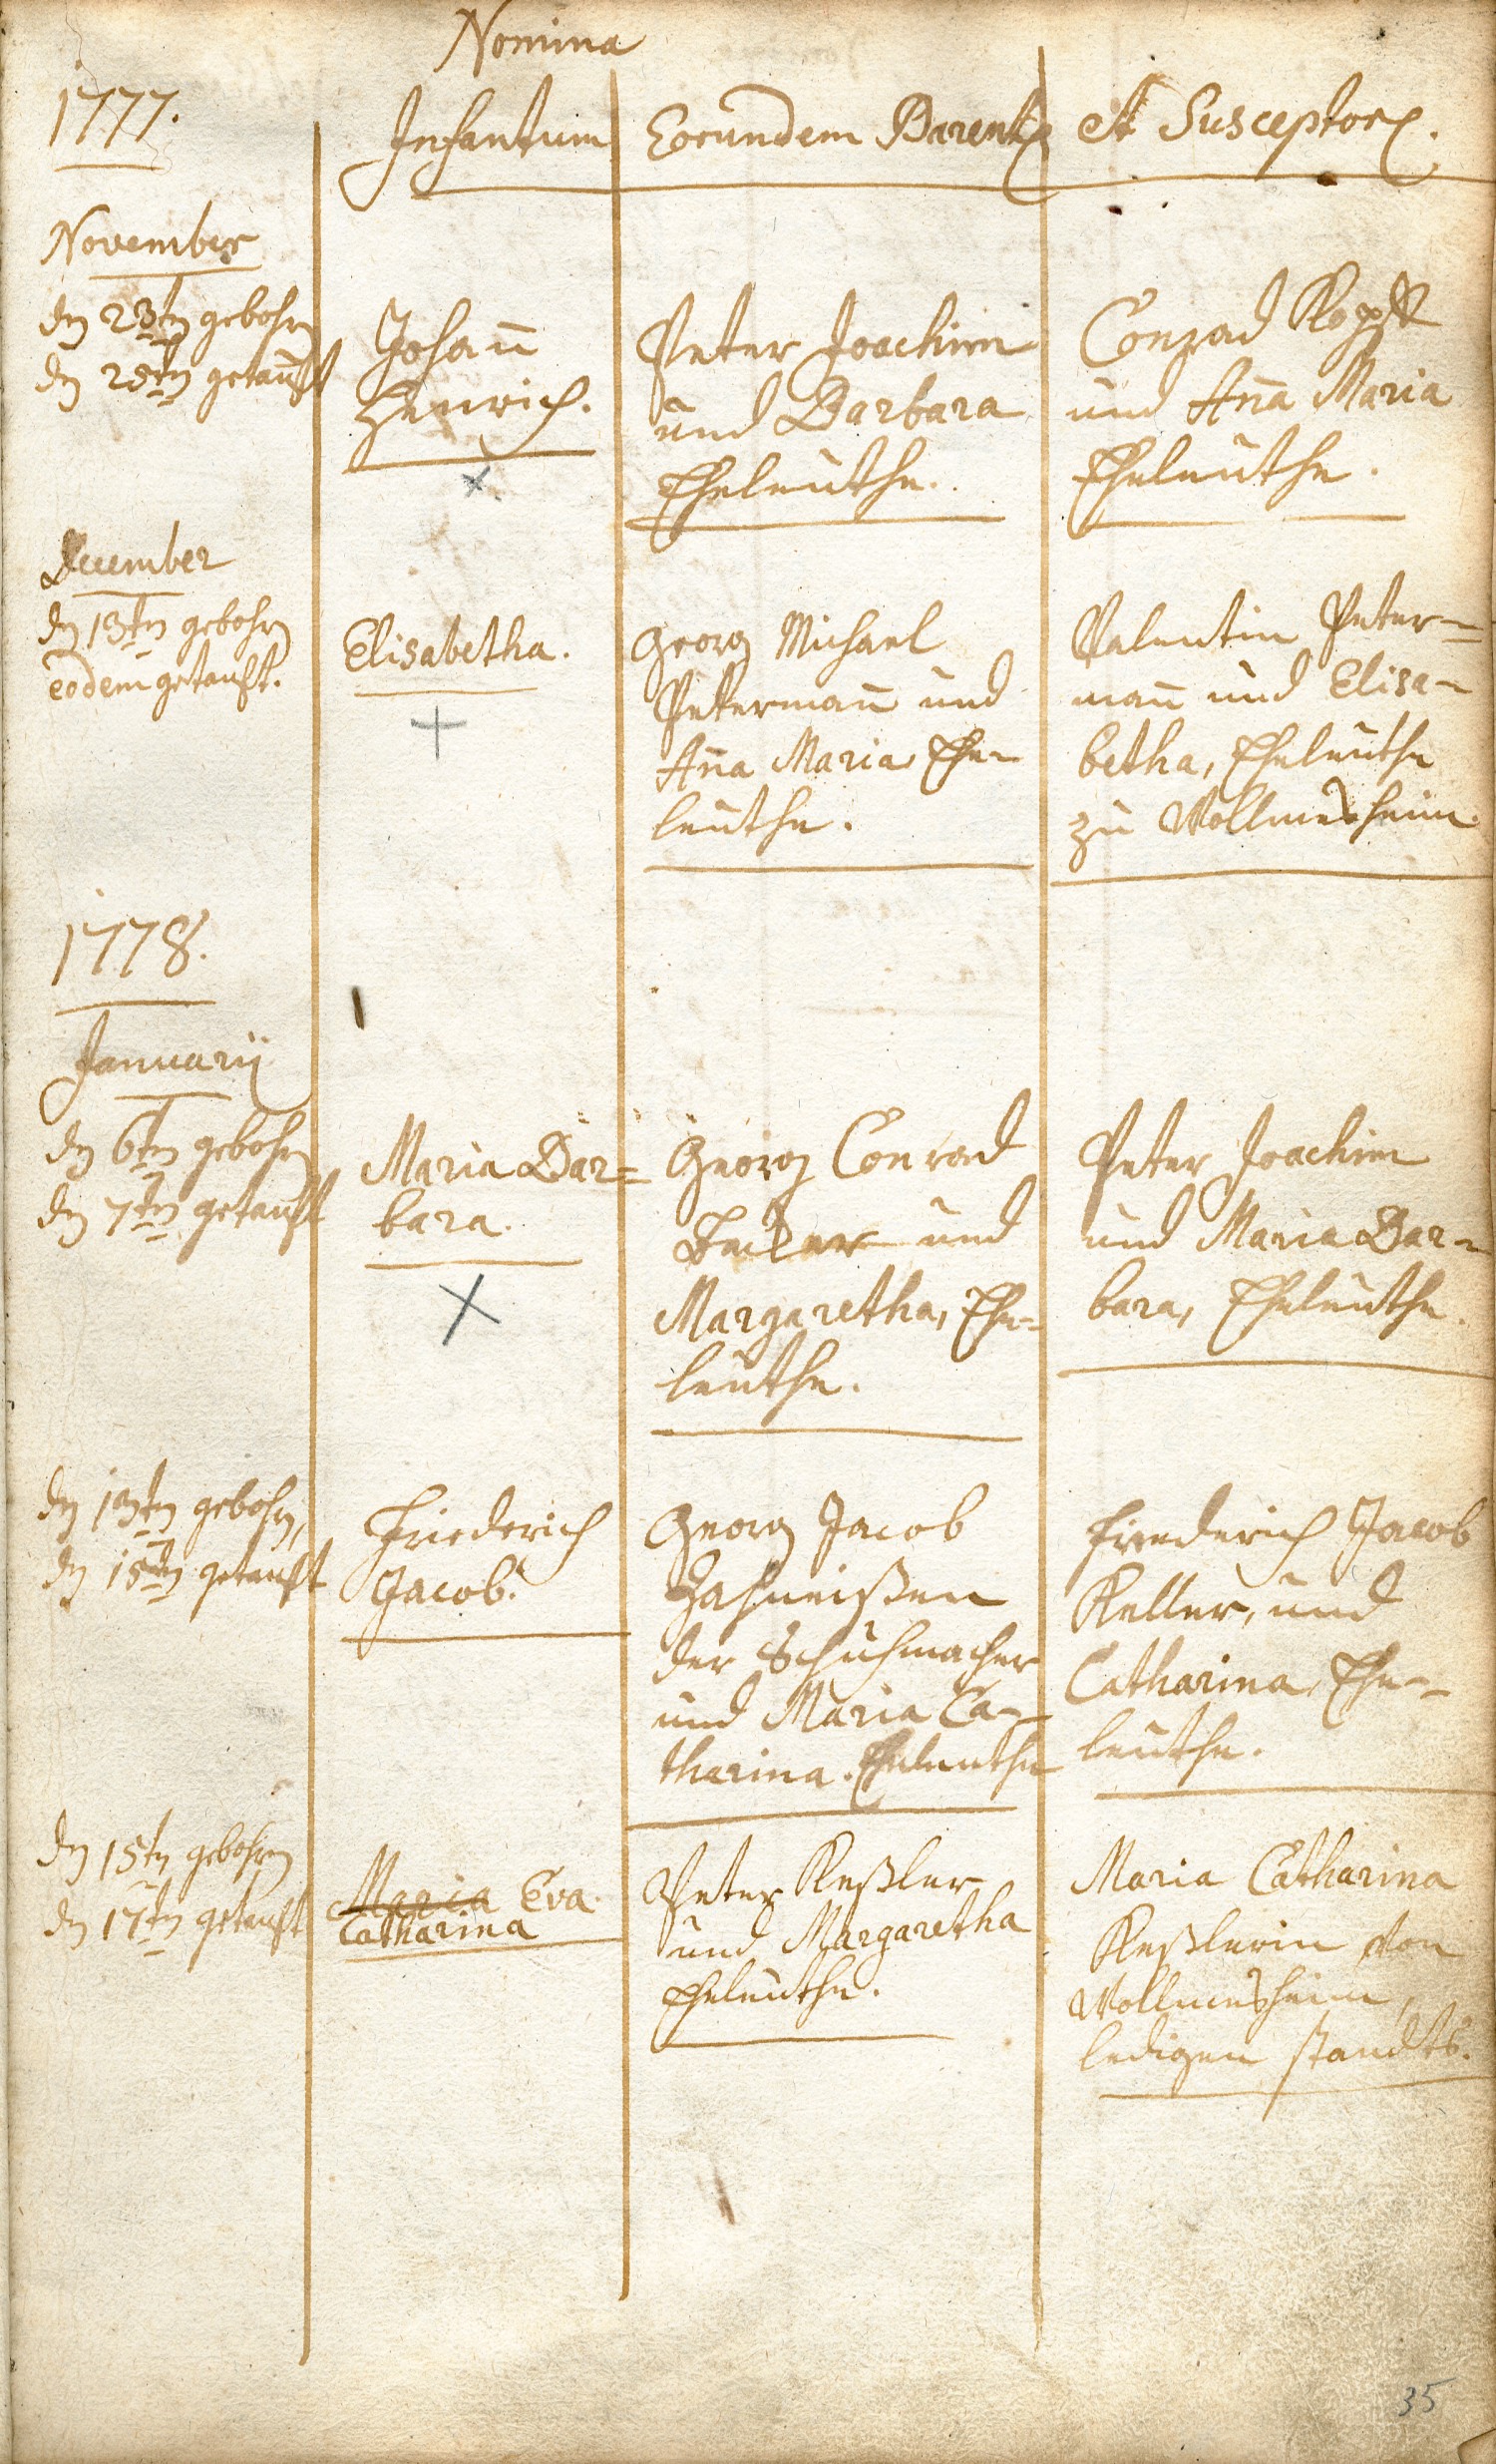 Nomina
1777.
Infantum
Eorundem Parent.
et Susceptor.
November
den 23ten gebohren
den 25ten getaufft
Johan̄
Henrich.
Peter Joachim
und Barbara
Eheleuthe.
Conrad
und An̄a Maria
Eheleuthe.
December
den 13ten gebohren
eodem getauft.
Elisabetha.
Georg Michael
Peterman̄ und
An̄a Maria Ehe-
leuthe.
Valentin Peter=
man̄ und Elisa-
betha, Eheleuthe
zu Wollmesheim.
1778.
Januarij
den 6ten gebohren
den 7ten getauft
Maria Bar=
bara.
Georg Conrad
Becker und
Margaretha, Ehe=
leuthe.
Peter Joachim
und Maria Bar=
bara, Eheleuthe.
den 13ten gebohren,
den 15ten getauft
Friederich
Jacob.
Georg Jacob
Zahneißen
der Schuhmacher
und Maria Ca-
tharina. Eheleuthe
Friederich Jacob
Keller, und
Catharina Ehe-
leuthe.
den 15ten gebohren
den 17ten getauft
Maria Eva.
Catharina
Peter Keßler
und Margaretha
Eheleuthe.
Maria Catharina
Keßlerin von
Wollmesheim,
ledigen standts.
35